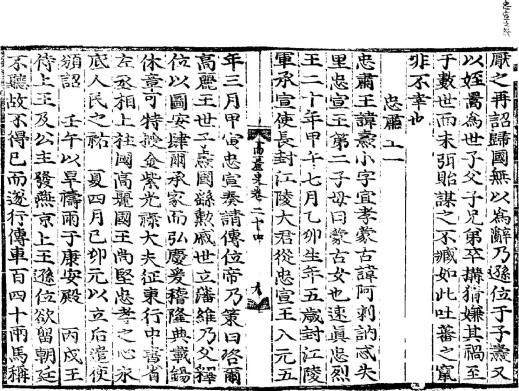 厭之再詔歸國無以為辭乃遜位于子燾又
以姪暠為世子父子兄弟卒搆猜嫌其禍至
于數世而未弭貽謀之不臧如此吐蕃之竄
非不幸也
忠肅王一
忠肅王諱燾小字宜孝蒙古諱阿剌訥忒失
里忠宣王第二子母曰蒙古女也速眞忠烈
王二十年甲午七月乙卯生年五歲封江陵
軍承宣使長封江陵大君從忠宣王入元五
高麗史卷三十四
九
年三月甲寅忠宣奏請傳位帝乃策曰咨爾
高麗王世子燾國繇勲戚世立藩維乃父釋
位以圖安肆爾承家而弘慶爰稽隆典載錫
休章可特授金紫光祿大夫征東行中書省
左丞相上柱國高麗國王尚堅忠孝之心永
底人民之祐 夏四月己卯元以立后遣使
頒詔 壬午以旱禱雨于康安殿 丙戌王
侍上王及公主發燕京上王遜位欲留朝廷
不聽故不得已而遂行傳車百四十兩馬稱